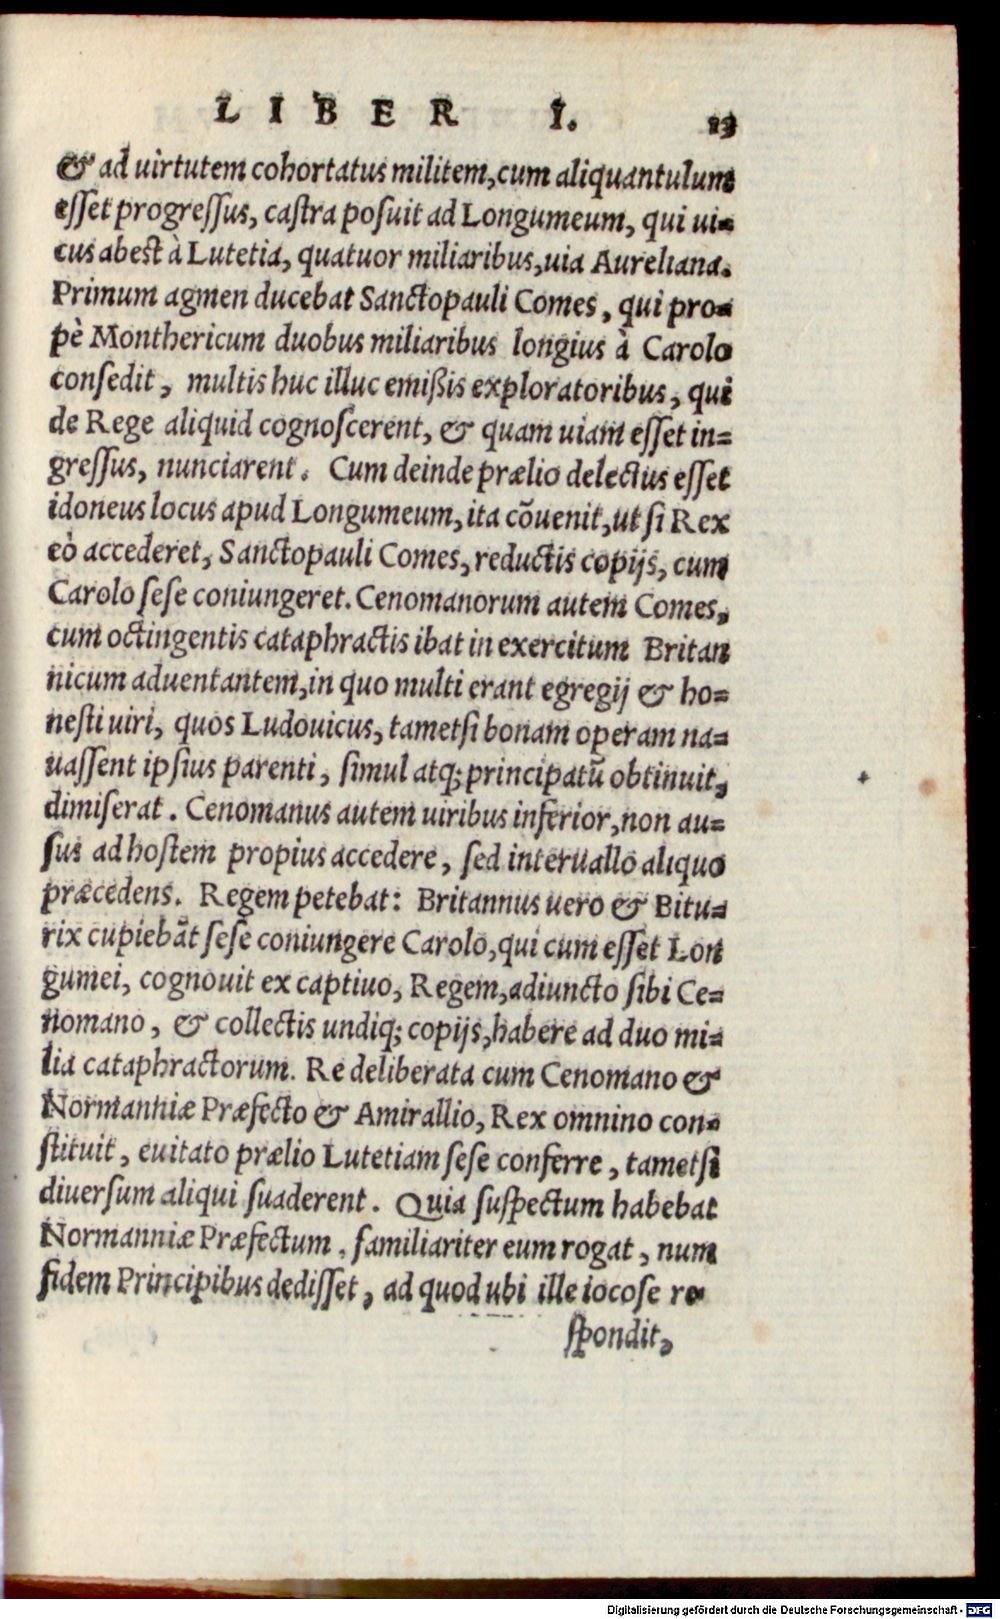 LIBER I. 13
& ad uirtutem cohortatus militem, cum aliquantulum
esset progressus, castra posuit ad Longumeum, qui ui=
cus abest à Lutetia, quatuor miliaribus, uia Aureliana.
Primum agmen ducebat Sanctopauli Comes, qui pro=
pè Monthericum duobus miliaribus longius à Carolo
consedit, multis huc illuc emißis exploratoribus, qui
de Rege aliquid cognoscerent, & quam uiam esset in=
gressus, nunciarent. Cum deinde prælio delectus esset
idoneus locus apud Longumeum, ita cõuenit, ut si Rex
eò accederet, Sanctopauli Comes, reductis copijs, cum
Carolo sese coniungeret. Cenomanorum autem Comes,
cum octingentis cataphractis ibat in exercitum Britan
nicum aduentantem, in quo multi erant egregij & ho=
nesti uiri, quos Ludouicus, tametsi bonam operam na=
uassent ipsius parenti, simul atq; principatũ obtinuit,
dimiserat. Cenomanus autem uiribus inferior, non au=
sus ad hostem propius accedere, sed interuallo aliquo
præcedens. Regem petebat: Britannus uero & Bitu=
rix cupiebãt sese coniungere Carolo, qui cum esset Lon
gumei, cognouit ex captiuo, Regem, adiuncto sibi Ce=
nomano, & collectis undiq; copijs, habere ad duo mi=
lia cataphractorum. Re deliberata cum Cenomano &
Normanniæ Præfecto & Amirallio, Rex omnino con=
stituit, euitato prælio Lutetiam sese conferre, tametsi
diuersum aliqui suaderent. Quia suspectum habebat
Normanniæ Præfectum, familiariter eum rogat, num
fidem Principibus dedisset, ad quod ubi ille iocose re
spondit,
Digitalisierung gefördert durch die Deutsche Forschungsgemeinschaft - DFG